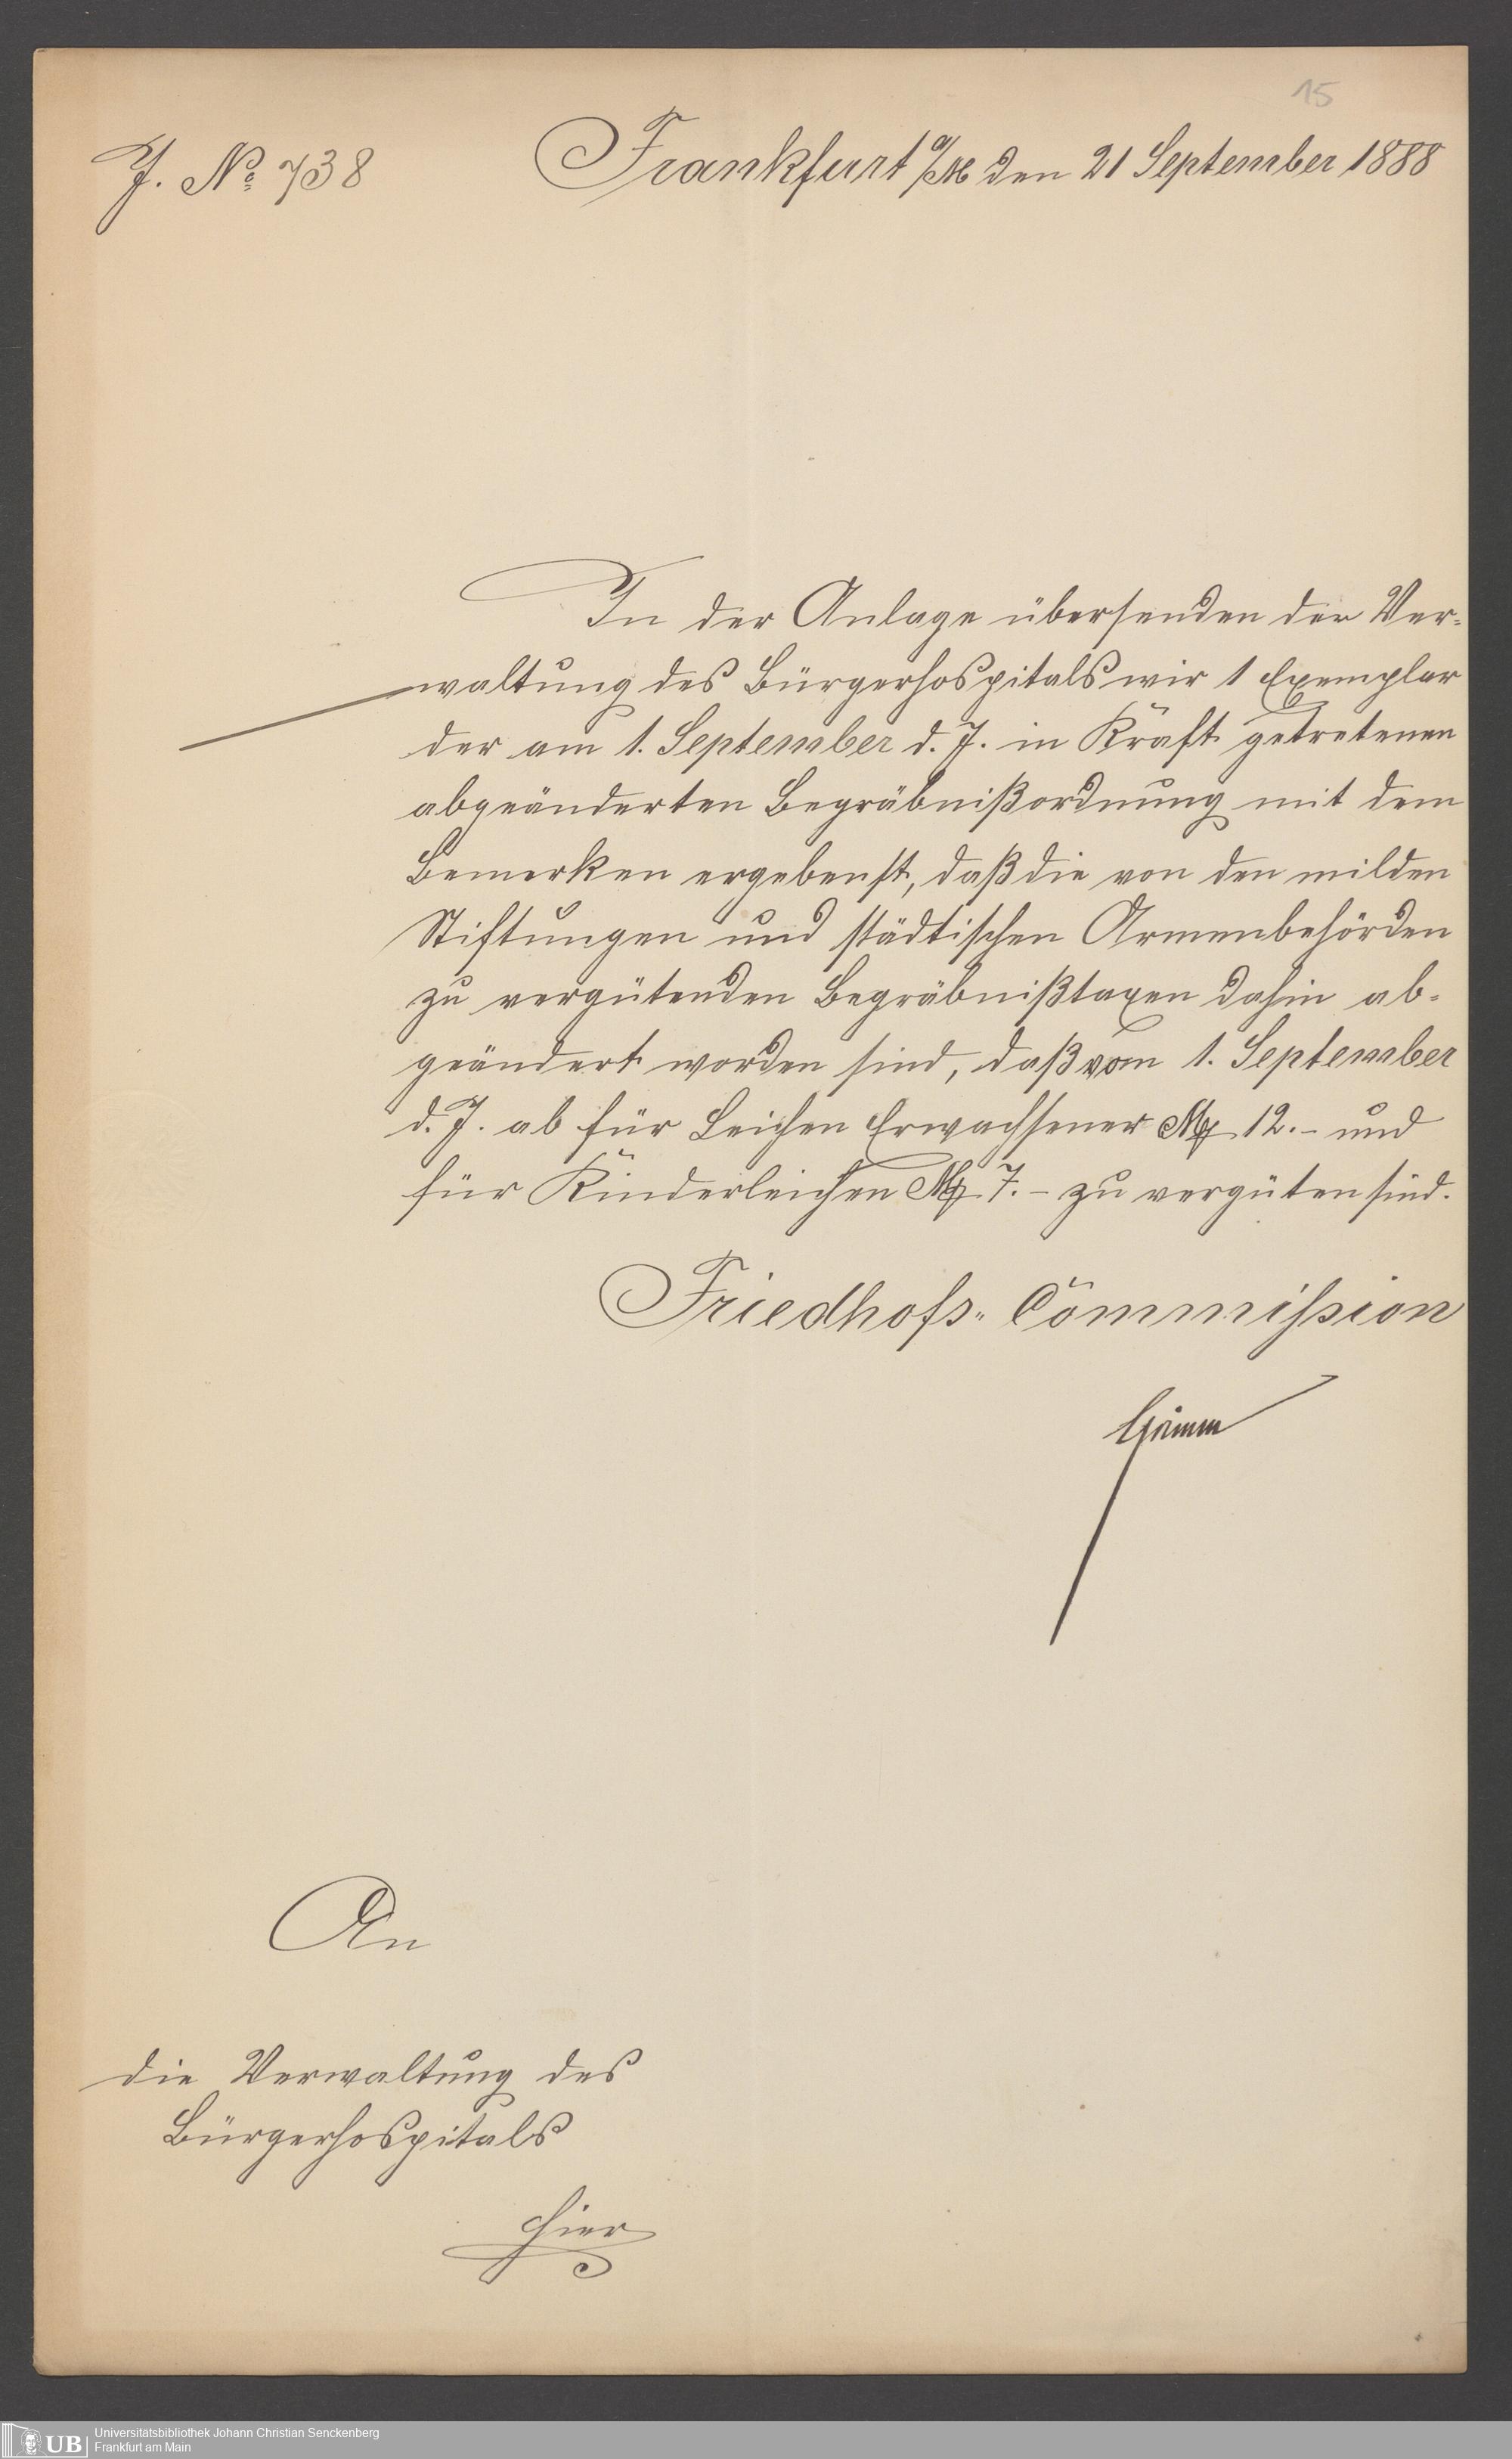 15
J. No 738
Frankfurt a/M den 21 September 1888
In der Anlage übersenden der Ver-
waltung des Bürgerhospitals wir 1 Exemplar
der am 1. September d. J. in Kraft getretenen
abgeänderten Begräbnißordnung mit dem
Bemerken ergebenst, daß die von den milden
Stiftungen und städtischen Armenbehörden
zu vergütenden Begräbnißtaxen dahin ab-
geändert worden sind, daß vom 1. September
d. J. ab für Leichen Erwachsener M 12.- und
für Kinderleichen M 7.- zu vergüten sind.
Friedhofs-Commißion
Grimm
An
die Verwaltung des
Bürgerhospitals
hier
UB
Universitätsbibliothek Johann Christian Senckenberg
Frankfurt am Main